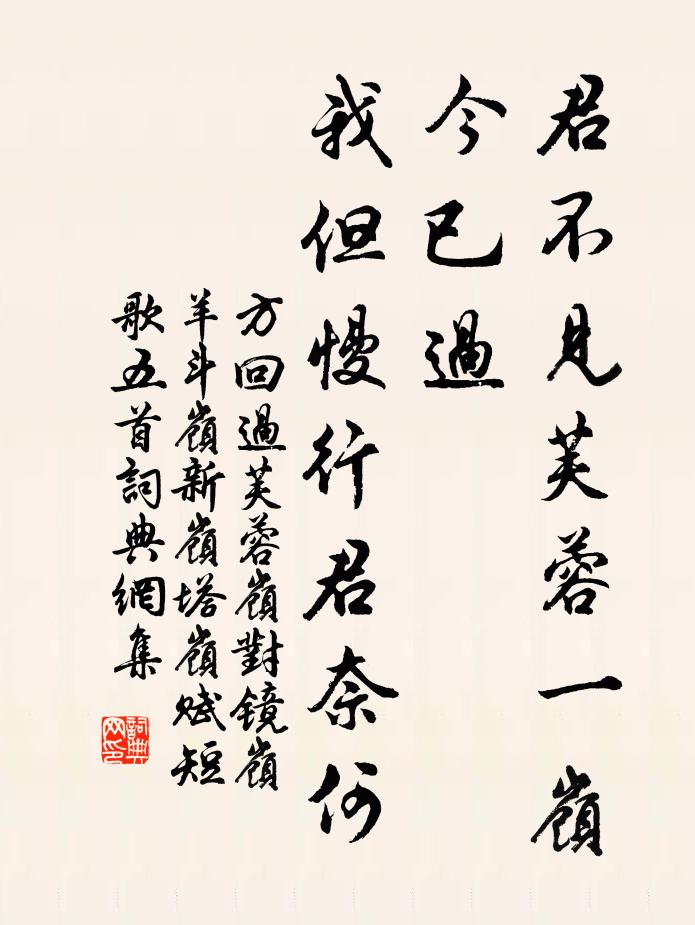 君不見芙蓉一嶺
今已過
我但慢行君奈何
方回過芙蓉嶺對鏡嶺
羊斗嶺新嶺塔嶺賦短
歌五首詞典網集
詞典網印